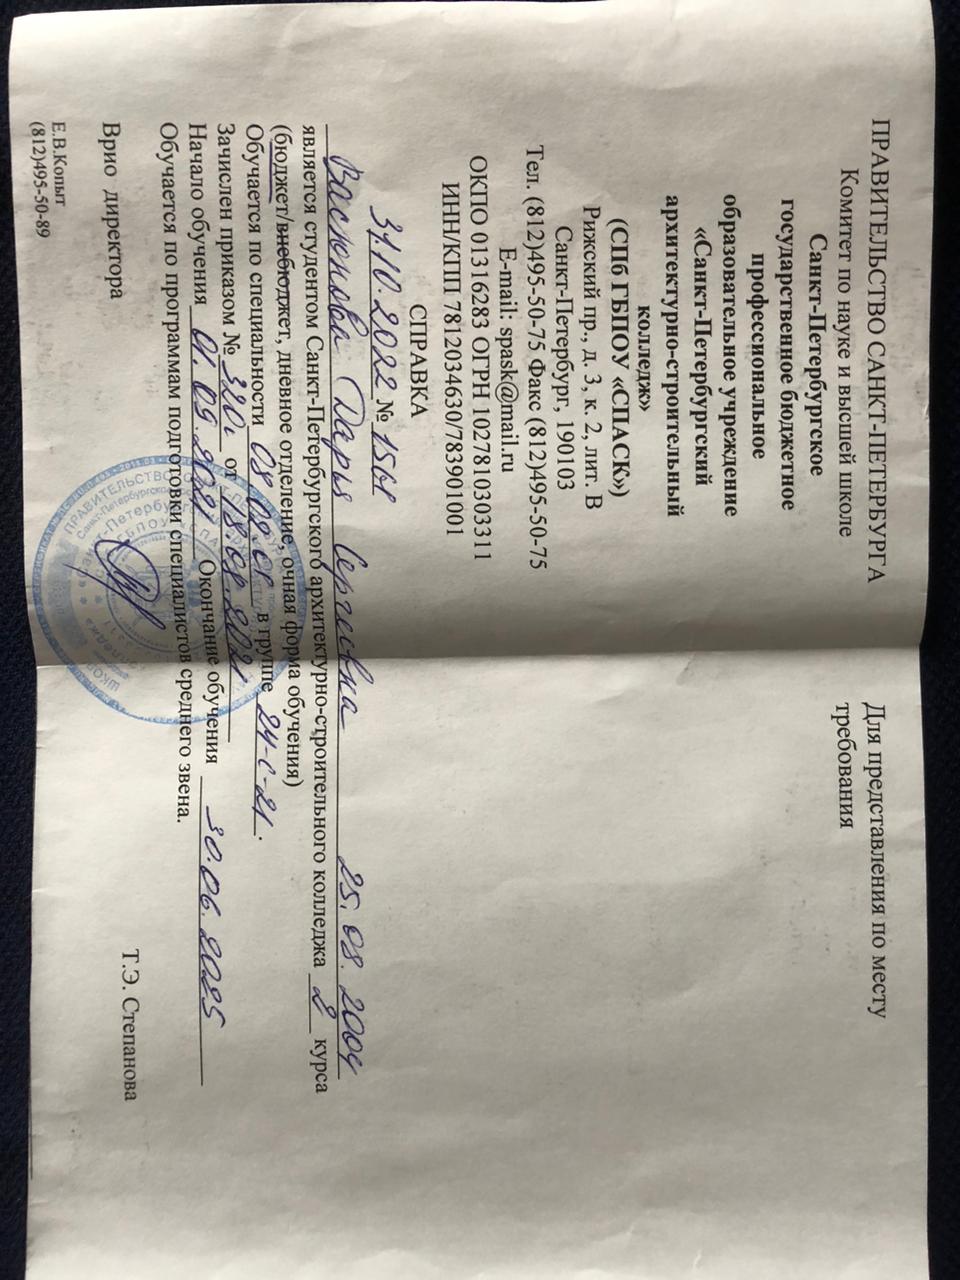 ПРАВИТЕЛЬСТВО САНКТ-ПЕТЕРБУРГА
Комитет по науке и высшей школе
Санкт-Петербургское
государственное бюджетное
профессиональное
образовательное учреждение
«Санкт-Петербургский
архитектурно-строительный
колледж»
(СПб ГБПОУ «СПАСК»)
Рижский пр., д. 3, к. 2, лит. В
Санкт-Петербург, 190103
Тел. (812)495-50-75 Факс (812)495-50-75
E-mail: spask@mail.ru
ОКПО 01316283 ОГРН 1027810303311
ИНН/КПП 7812034630/783901001
Для представления по месту
требования
31.10.2022 № 1501
СПРАВКА
Васюнова Дарья Сергеевна 25.08.2004
является студентом Санкт-Петербургского архитектурно-строительного колледжа 2 курса
(бюджет/внебюджет, дневное отделение, очная форма обучения)
Обучается по специальности 08.02.01 в группе 24-С-21.
Зачислен приказом № 320 от 18.08.2021
Начало обучения 01.09.2021 Окончание обучения 30.06.2025
Обучается по программам подготовки специалистов среднего звена.
Врио директора Т.Э. Степанова
Е.В.Копыт
(812)495-50-89